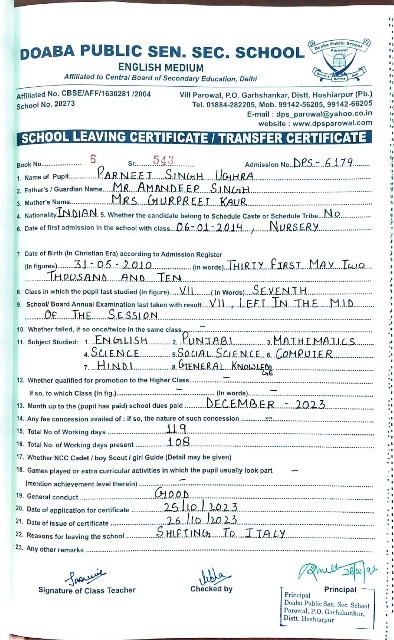 DOABA PUBLIC SEN. SEC. SCHOOL
ENGLISH MEDIUM
Affiliated to Central Board of Secondary Education, Delhi
Doaba Public School
Parowal
Affiliated No. CBSE/AFF/1630281 /2004
School No. 20273
Vill Parowal, P.O. Garhshankar, Distt. Hoshiarpur (Pb.)
Tel. 01884-282205, Mob. 99142-56205, 99142-66205
E-mail : dps_parowal@yahoo.co.in
website : www.dpsparowal.com
SCHOOL LEAVING CERTIFICATE / TRANSFER CERTIFICATE
Book No. 6 Sr. 543 Admission No. DPS-6179
1. Name of Pupil PARNEET SINGH UGHRA
2. Father's / Guardian Name MR AMANDEEP SINGH
3. Mother's Name MRS GURPREET KAUR
4. Nationality INDIAN 5. Whether the candidate belong to Schedule Caste or Schedule Tribe No
6. Date of first admission in the school with class 06-01-2014, NURSERY
7. Date of Birth (In Christian Era) according to Admission Register
(In figures) 31-05-2010 (in words) THIRTY FIRST MAY TWO
THOUSAND AND TEN
8. Class in which the pupil last studied (in figure) VII (in Words) SEVENTH
9. School/ Board Annual Examination last taken with result VII, LEFT IN THE MID
OF THE SESSION
10. Whether failed, if so once/twice in the same class –
11. Subject Studied: 1. ENGLISH 2. PUNJABI 3. MATHEMATICS
4. SCIENCE 5. SOCIAL SCIENCE 6. COMPUTER
7. HINDI 8. GENERAL KNOWLEDGE
12. Whether qualified for promotion to the Higher Class –
If so, to which Class (in fig.) – (In words) –
13. Month up to the (pupil has paid) school dues paid DECEMBER - 2023
14. Any fee concession availed of : if so, the nature of such concession –
15. Total No of Working days 119
16. Total No. of Working days present 108
17. Whether NCC Cadet / boy Scout / girl Guide (Detail may be given)
18. Games played or extra curricular activities in which the pupil usually took part –
(mention achievement level therein) –
19. General conduct GOOD
20. Date of application for certificate 25/10/2023
21. Date of issue of certificate 26/10/2023
22. Reasons for leaving the school SHIFTING TO ITALY
23. Any other remarks
Signature of Class Teacher
Checked by
Principal
Principal
Doaba Public Sen. Sec. School
Parowal, P.O. Garhshankar,
Distt. Hoshiarpur